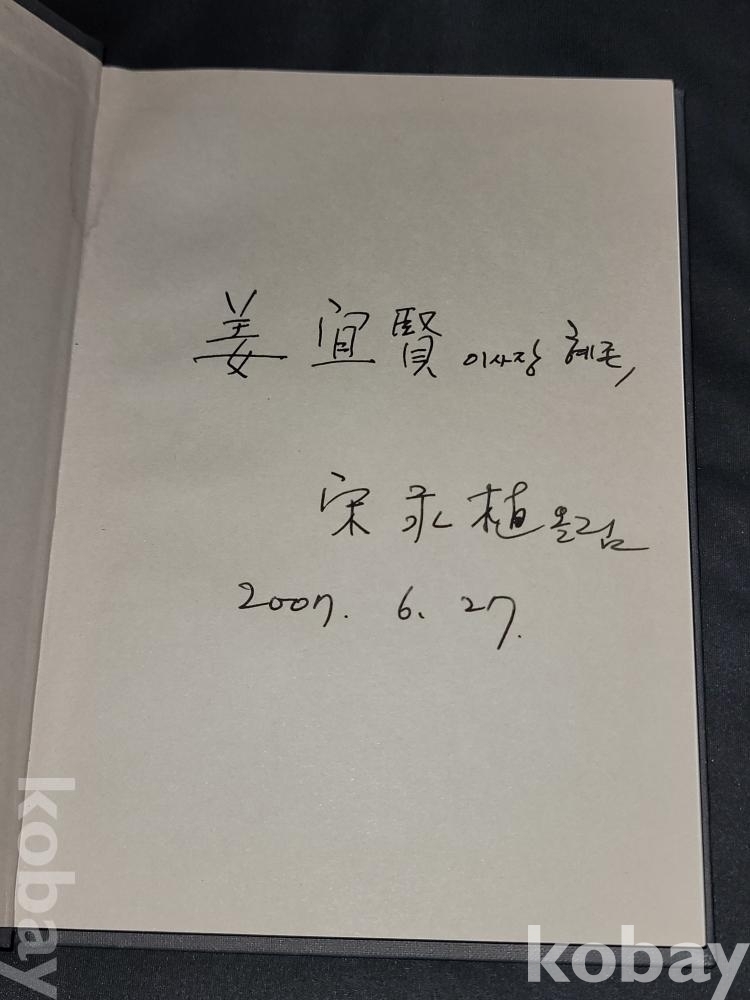 姜 宜 賢 이사장 혜존,
宋 永 植 올림
2007. 6. 27.
kobay
kobay